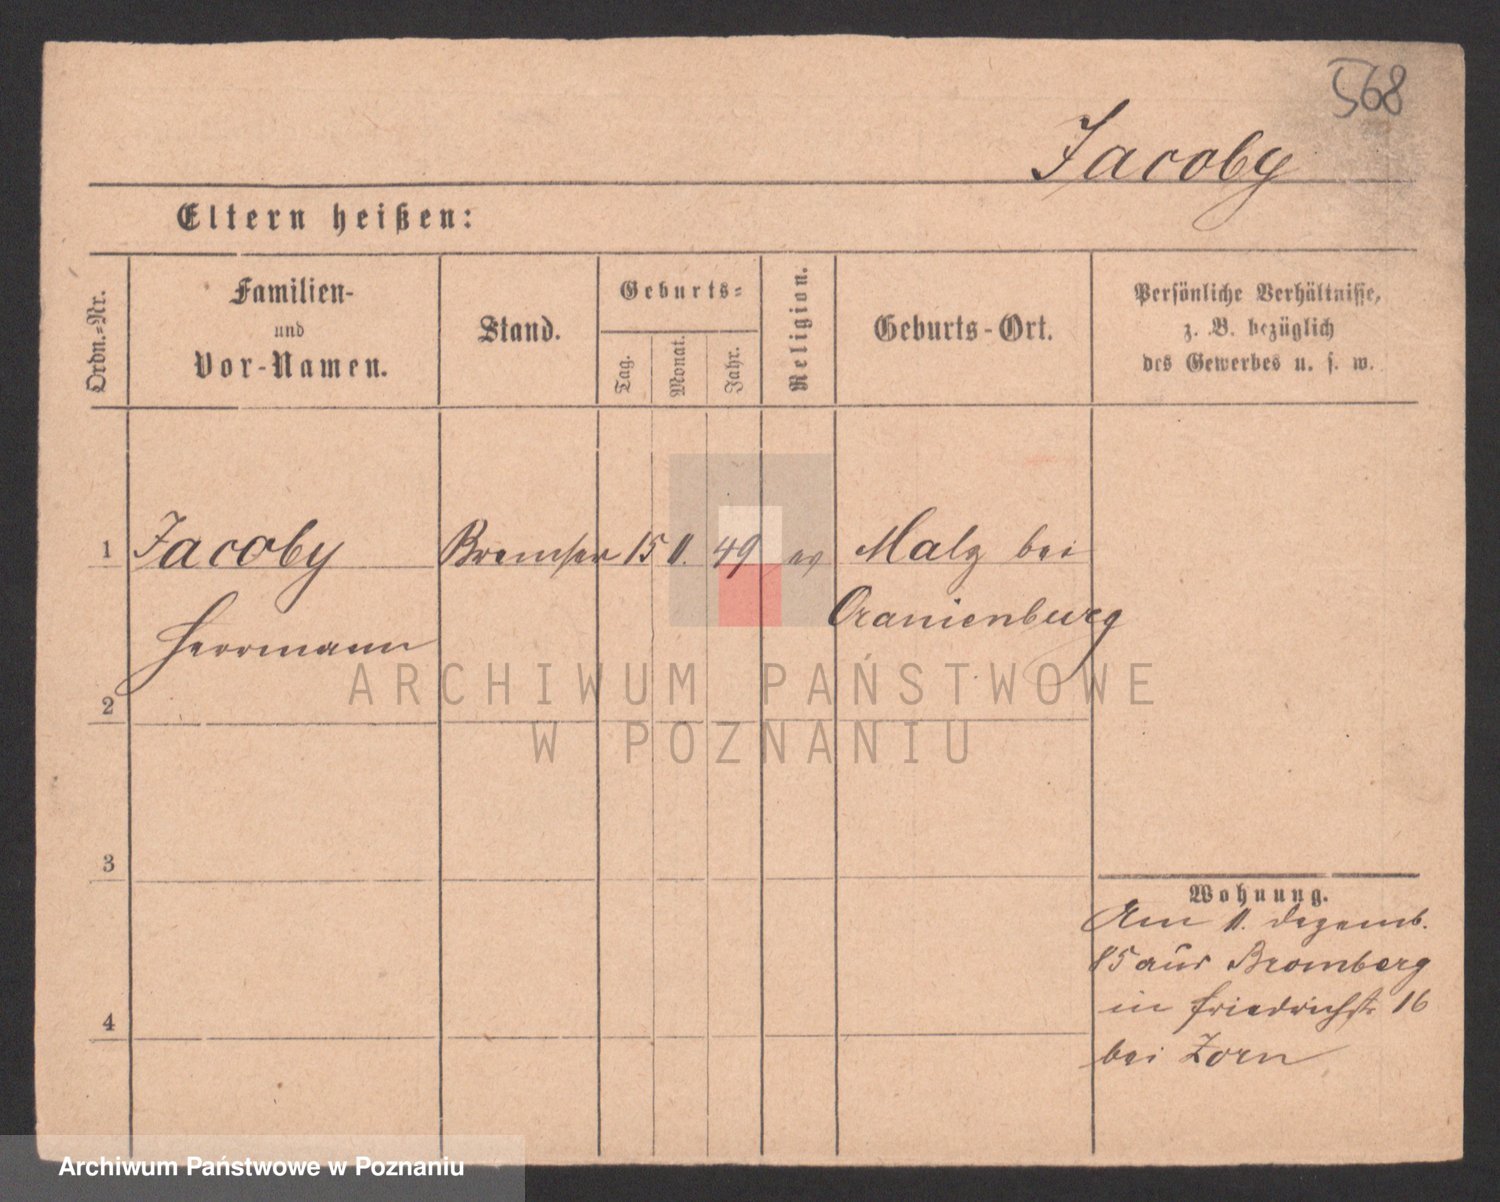 568
Jacoby
Eltern heißen:
Ordn.-Nr.
Familien-
und
Vor-Namen.
Stand.
Geburts-
Tag.
Monat.
Jahr.
Religion.
Geburts-Ort.
Persönliche Verhältnisse,
z. B. bezüglich
des Gewerbes u. s. w.
1 Jacoby Bremser 15 11. 49 ev Malz bei
Oranienburg
Herrmann
2
ARCHIWUM PAŃSTWOWE
W POZNANIU
3
Wohnung.
Am 11. Dezemb.
85 aus Bromberg
in Friedrichstr 16
bei Zorn
4
Archiwum Państwowe w Poznaniu